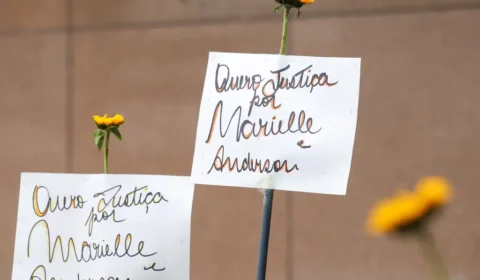 Quero Justiça
por
Marielle
e
Anderson
Quero Justiça
por
Marielle
e
Anderson